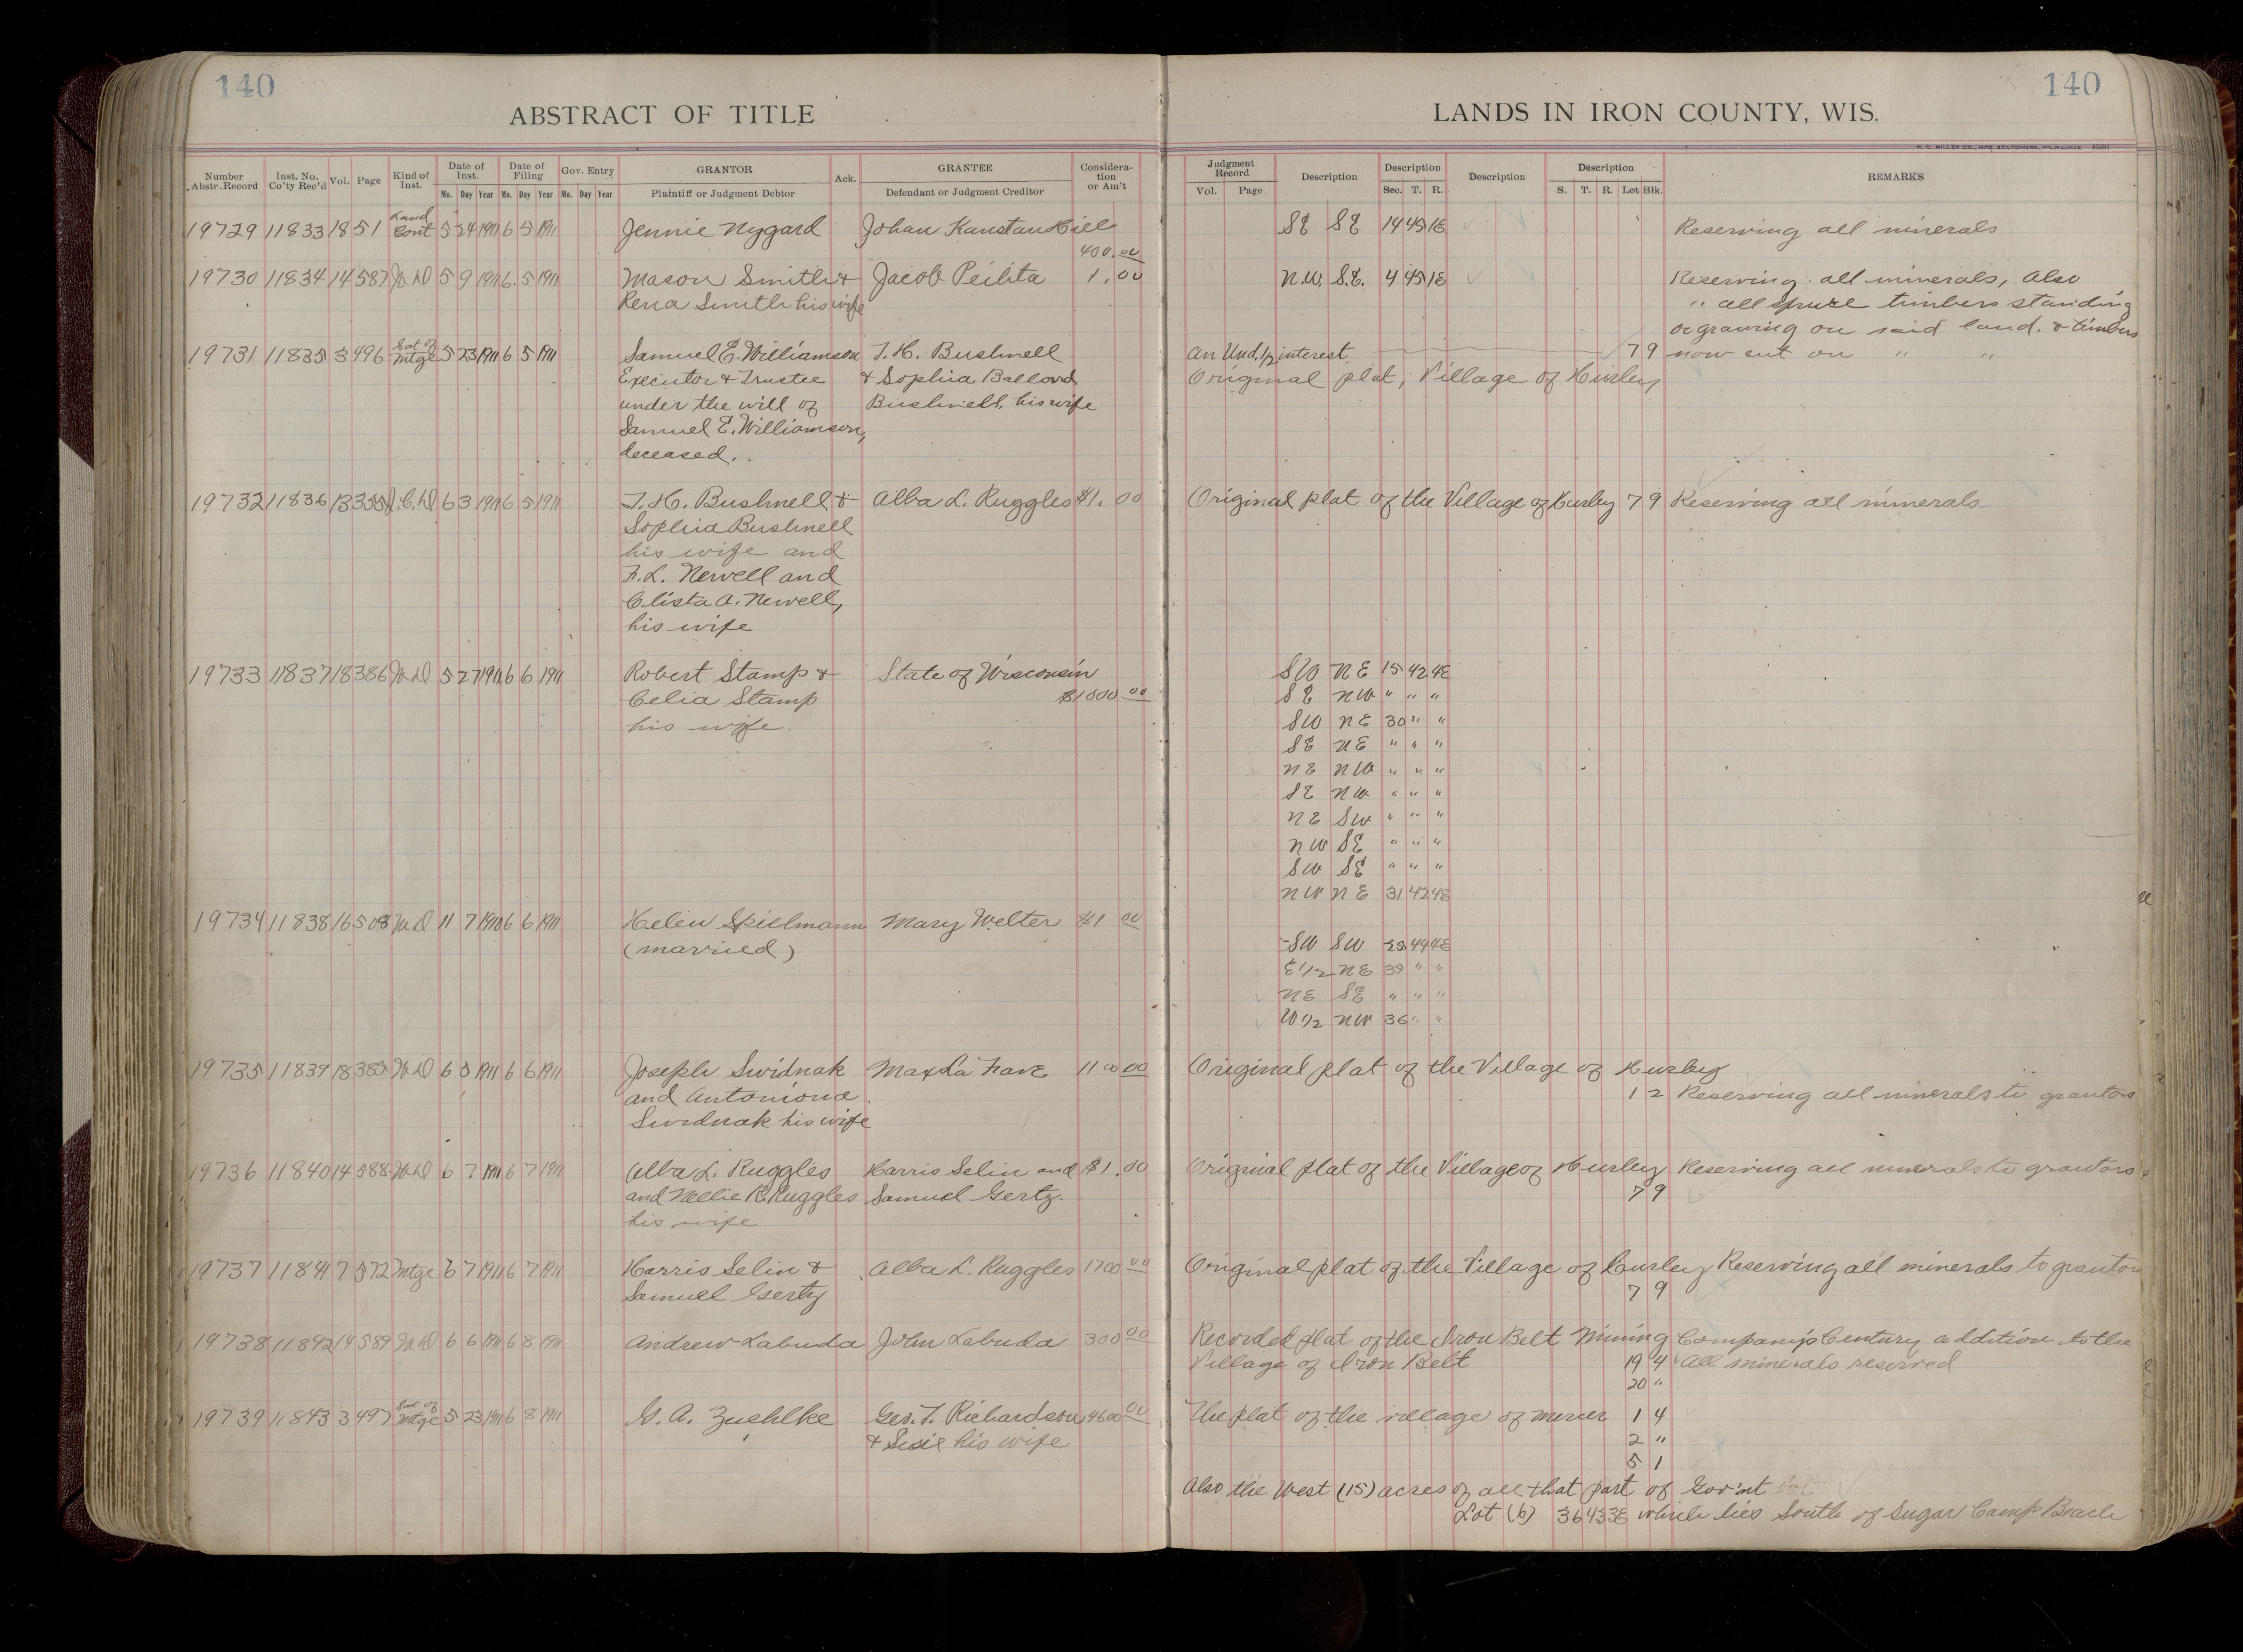 140
140
ABSTRACT OF TITLE
LANDS IN IRON COUNTY, WIS.
H. C. MILLER CO., MFG. STATIONERS, MILWAUKEE
Number Abstr. Record
Inst. No. Co'ty Rec'd
Vol.
Page
Kind of Inst.
Date of Inst.
Mo. Day Year
Date of Filing
Mo. Day Year
Gov. Entry
Mo. Day Year
GRANTOR
Plaintiff or Judgment Debtor
Ack.
GRANTEE
Defendant or Judgment Creditor
Considera-tion or Am't
Judgment Record
Vol. Page
Description
Description
Sec. T. R.
Description
Description
S. T. R. Lot Blk.
REMARKS
19729 11833 18 51 Land Cont 5 24 1911 6 5 1911 Jennie Nygard Johan Kanstan 400.00 SE SE 14 45 1E Reserving all minerals
19730 11834 14 587 W D 5 9 1911 6 5 1911 Mason Smith & Jacob 1.00 N.W. S.E. 4 45 1E Reserving all minerals, also
Rena Smith his wife " all spruce timbers standing
or growing on said land. & timbers
19731 11835 3 496 Sat of Mtge 5 23 1911 6 5 1911 Samuel E. Williamson T. H. Bushnell an Und. 1/2 interest 7 9 now cut on " "
Executor & Trustee & Sophia Ballard Original plat, Village of Hurley
under the will of Bushnell, his wife
Samuel E. Williamson,
deceased.
19732 11836 13 355 Q.C.D 6 3 1911 6 5 1911 T. H. Bushnell & Alba L. Ruggles $1.00 Original plat of the Village of Hurley 7 9 Reserving all minerals
Sophia Bushnell
his wife and
F. L. Newell and
Clista A. Newell,
his wife
19733 11837 18 386 W D 5 27 1911 6 6 1911 Robert Stamp & State of Wisconsin SW NE 15 42 4E
Celia Stamp $1800 00 SE NW " " "
his wife. SW NE 30 " "
SE NE " " "
NE NW " " "
SE NW " " "
NE SW " " "
NW SE " " "
SW SE " " "
NW NE 31 42 4E
19734 11838 16 508 W D 11 7 1910 6 6 1911 Helen Spielmann Mary Welter $1 00
(married) SW SW 44 4E
E 1/2 NE " "
NE SE " " "
W 1/2 NW 36 " "
19735 11839 18 385 W D 6 3 1911 6 6 1911 Joseph Swidnak Max La Fave 1100 00 Original plat of the Village of Hurley
and Antoniona 1 2 Reserving all minerals to grantors
Swidnak his wife
19736 11840 14 588 W D 6 7 1911 6 7 1911 Alba L. Ruggles Harris Selin and $1.00 Original plat of the Village of Hurley Reserving all minerals to grantors
and Nellie R. Ruggles Samuel Gertz. 7 9
his wife
19737 11841 7 572 Mtge 6 7 1911 6 7 1911 Harris Selin & Alba L. Ruggles 1700 00 Original plat of the Village of Hurley Reserving all minerals to grantor
Samuel Gertz 7 9
19738 11842 14 589 W D 6 6 1911 6 8 1911 Andrew Labuda John Labuda 300 00 Recorded plat of the Iron Belt Mining Company's Century addition to the
Village of Iron Belt 19 4 All minerals reserved
20 "
19739 11843 3 497 Sat of Mtge 5 23 1911 6 8 1911 G. A. Zuehlke Geo. T. Richardson 4600 00 The plat of the village of Mercer 1 4
& Susie his wife 2 "
5 1
Also the West (15) acres of all that part of Gov'nt
Lot (6) 36 43 3E which lies South of Sugar Camp Beach